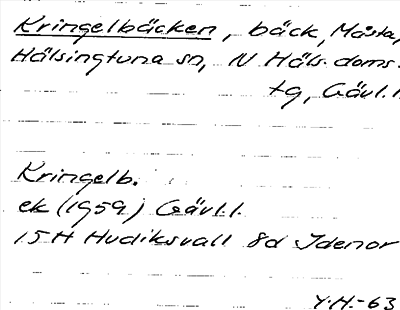 Kringelbäcken, bäck, Måsta,
Hälsingtuna sn, N Häls. doms.
tg, Gävl.l.
Kringelb.
ek (1959) Gävl.l.
15H Hudiksvall 8d Idenor
Y.H.-63